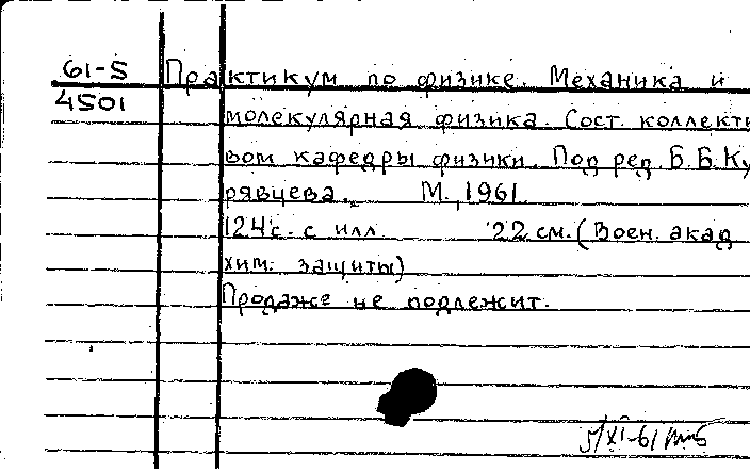 61-5 Практикум по физике. Механика и
4501 молекулярная физика. Сост. коллекти
вом кафедры физики. Под ред. Б.Б.Ку
рявцева. М., 1961
124 с. с илл. 22 см. (Воен. акад
хим. защиты)
Продаже не подлежит.
5/XI-61